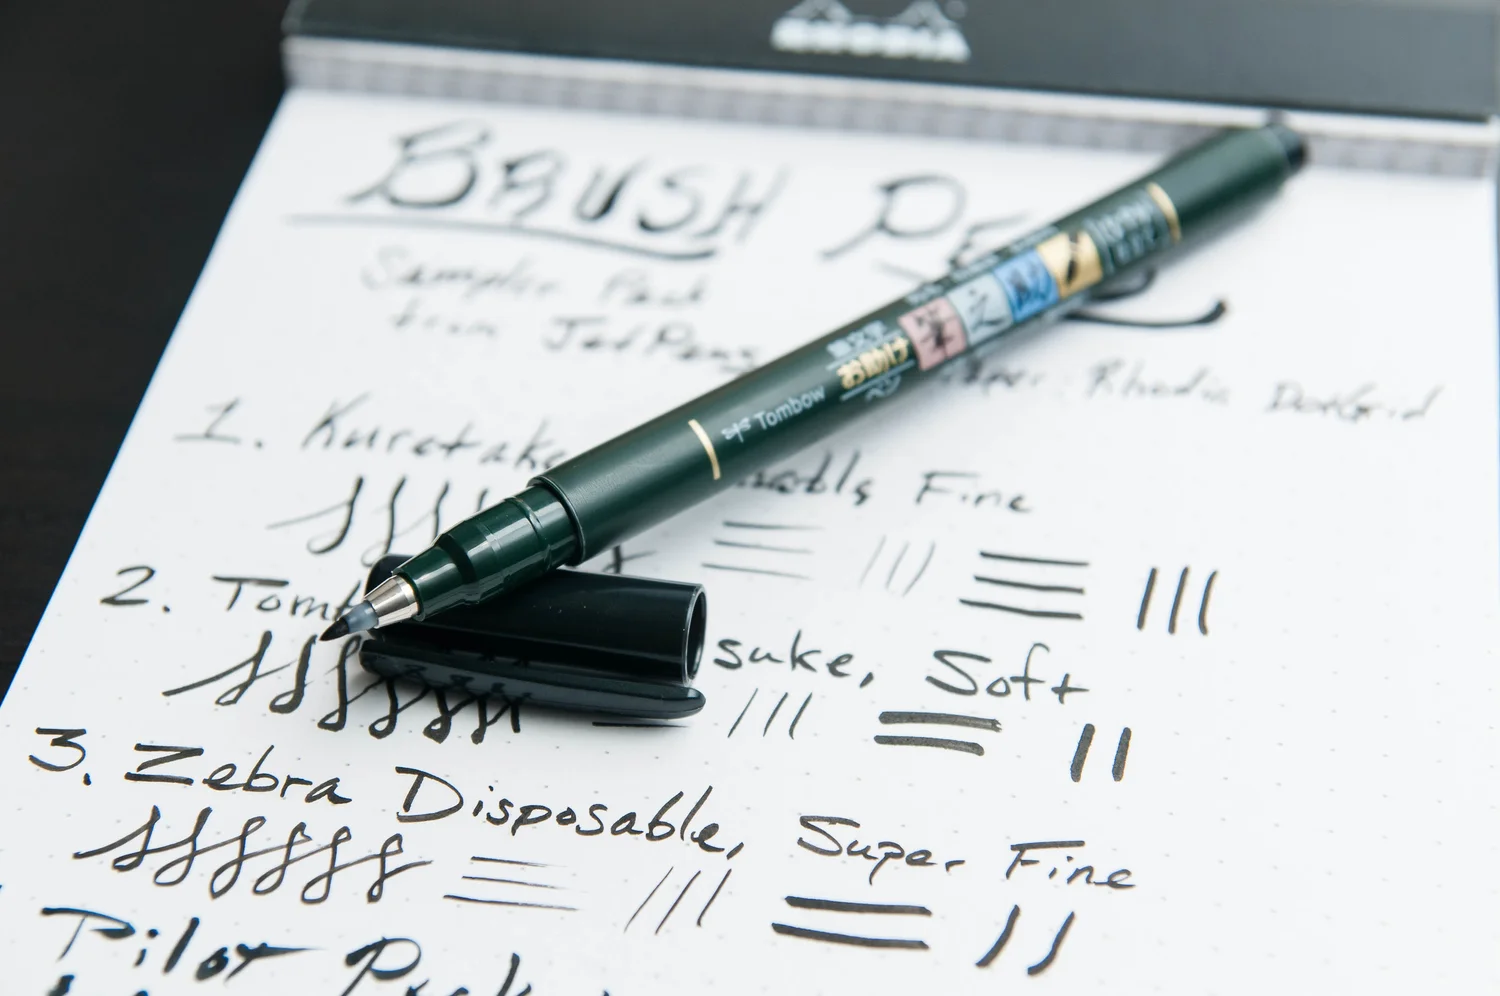 RHODIA
BRUSH PE
Sampler Pack
from JetPens
Paper: Rhodia DotGrid
筆文字
お助け
筆之
Tombow
1. Kuretake Fine
2. Tomb suke, Soft
3. Zebra Disposable, Super Fine
Pilot Pock